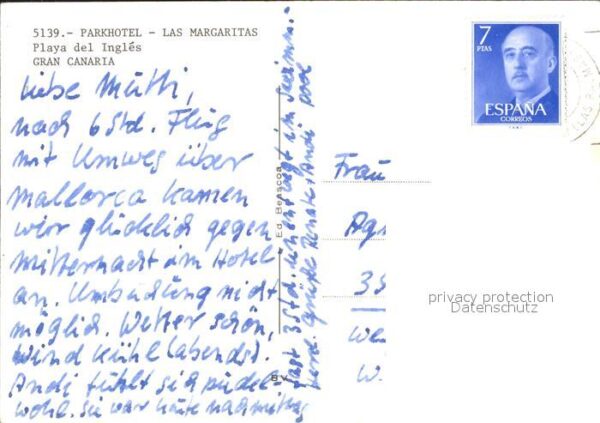 5139.- PARKHOTEL - LAS MARGARITAS
Playa del Inglés
GRAN CANARIA
Liebe Mutti,
nach 6 Std. Flug
mit Umweg über
Mallorca kamen
wir glücklich gegen
Mitternacht im Hotel
an. Umbuchung nicht
möglich. Wetter schön,
Wind kühl (abends).
Andi fühlt sich pudel-
wohl. Sie war heute nachmittag
fast 3 Std. ununterbr. im Swimm.
pool
Herzl. Grüße Renate + Andi
Ed. Beascoa
BV
7
PTAS
ESPAÑA
CORREOS
Frau
Ag
35
We
W.
privacy protection
Datenschutz